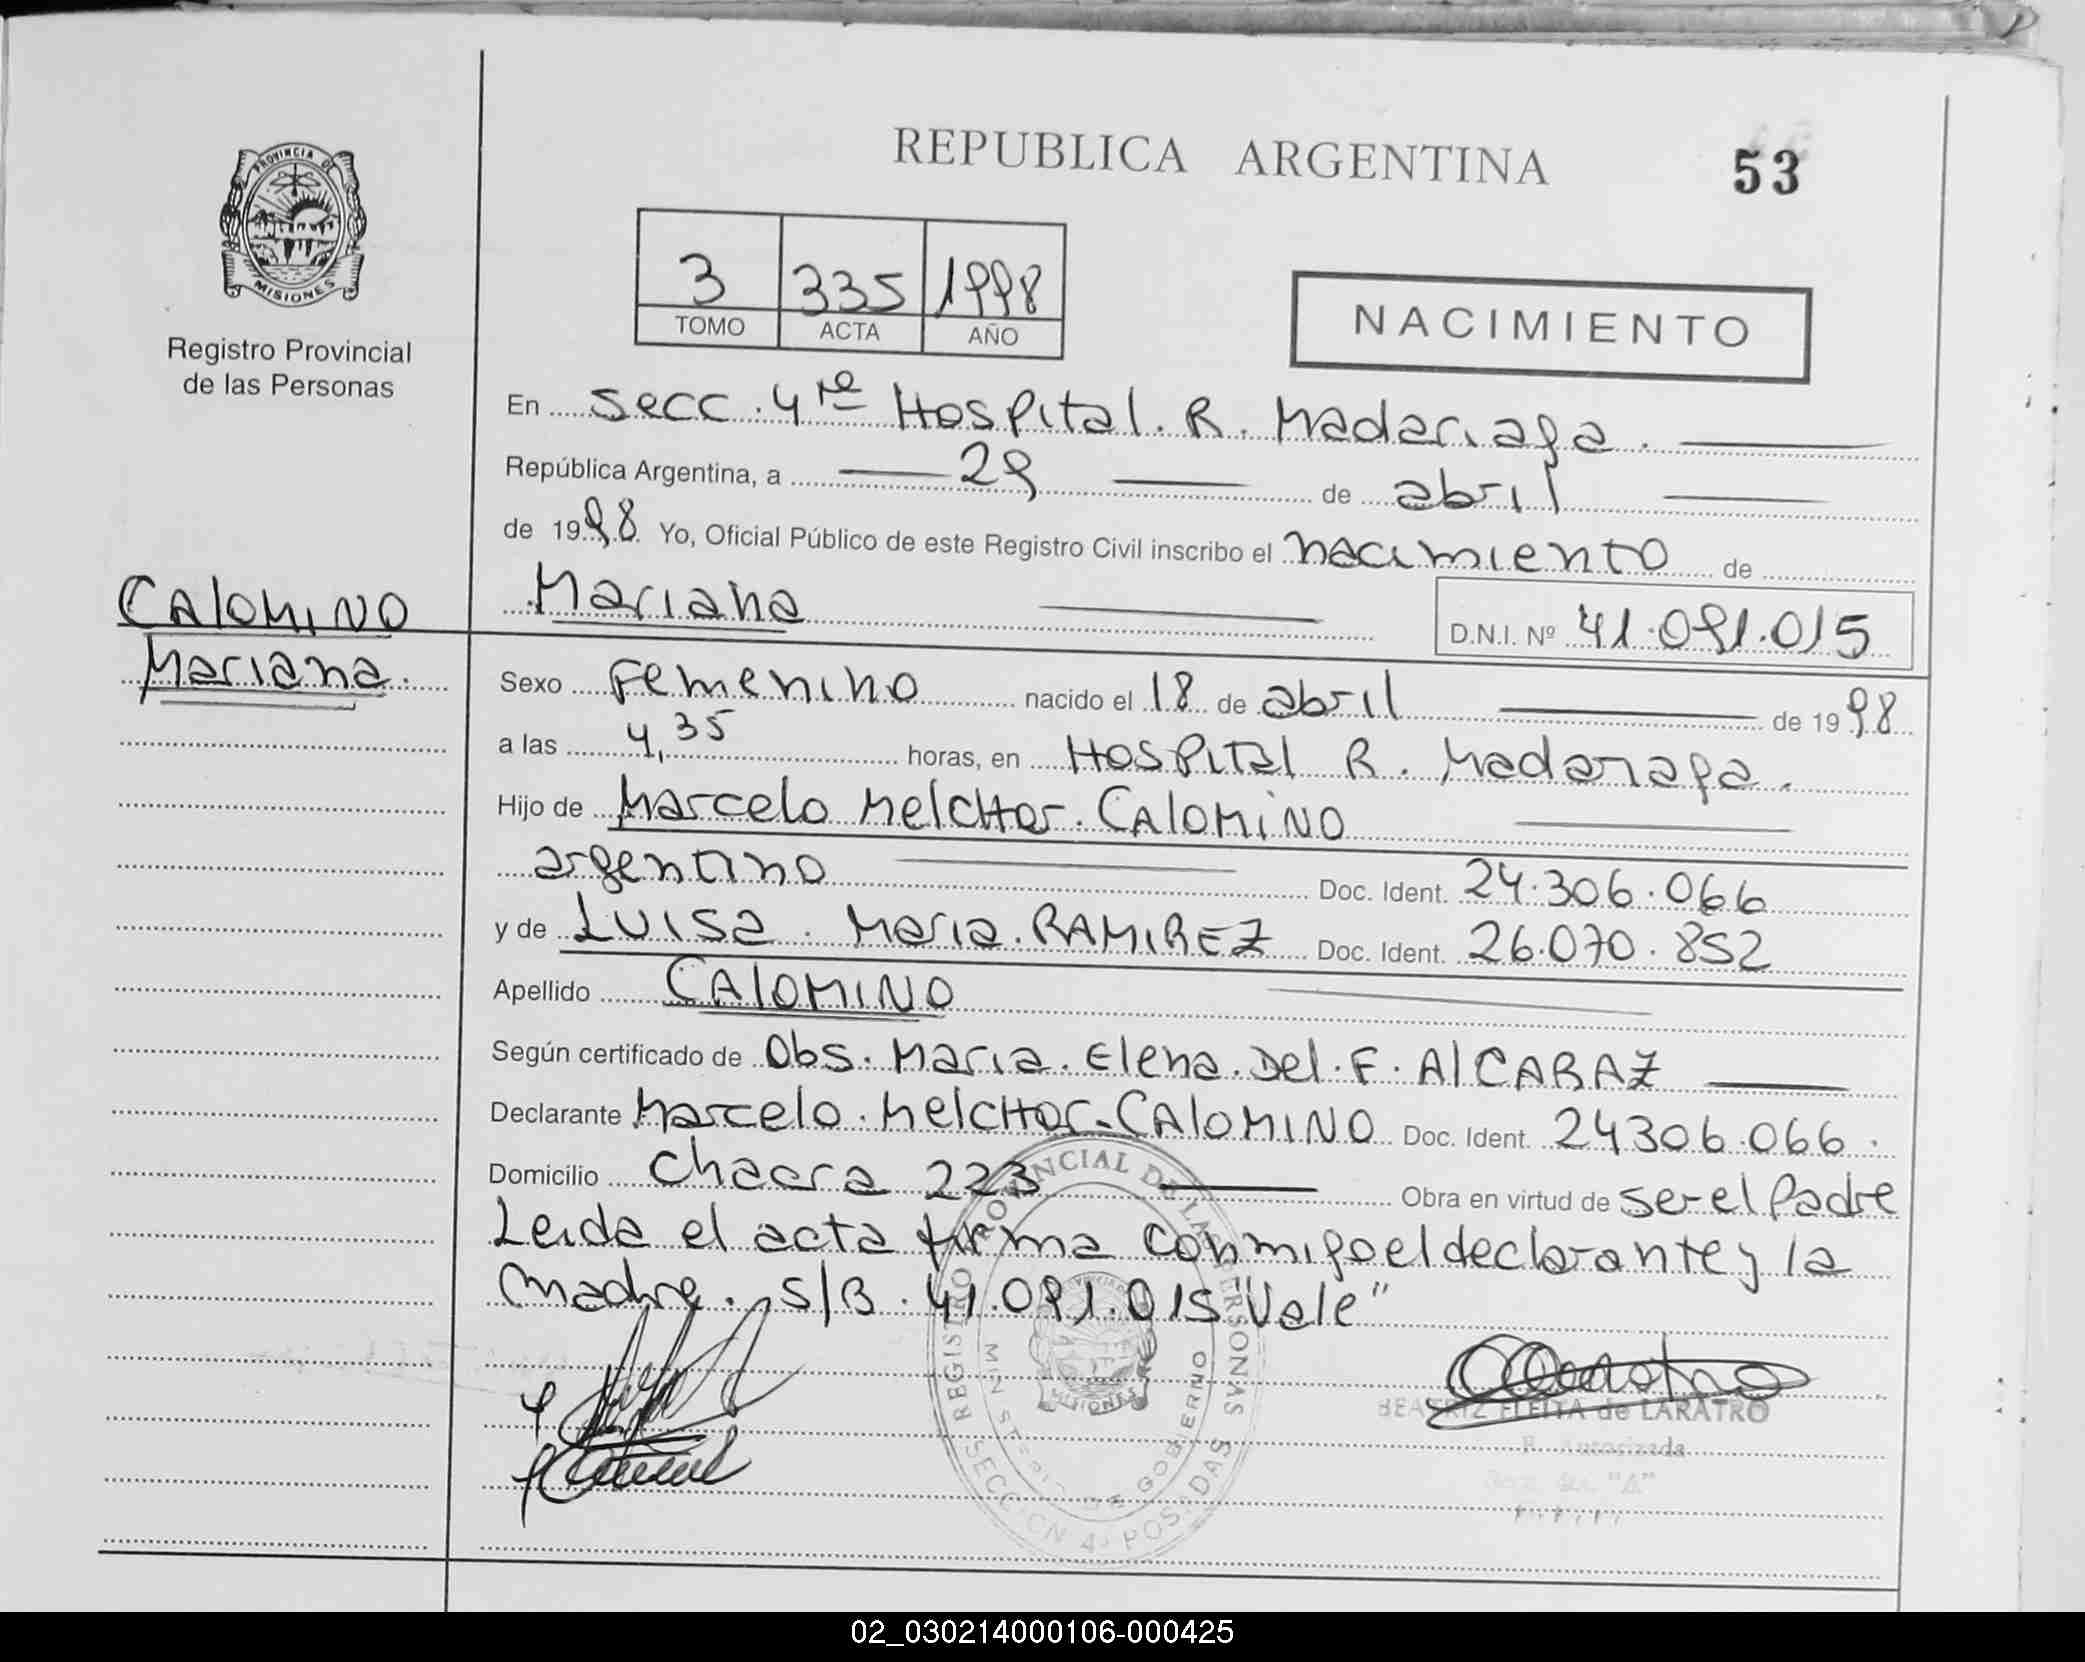 REPUBLICA ARGENTINA
53
PROVINCIA DE
MISIONES
Registro Provincial
de las Personas
3 335 1998
TOMO ACTA AÑO
NACIMIENTO
En Secc. 4ta Hospital. R. Madariaga.
República Argentina, a 29 de abril
de 1998 Yo, Oficial Público de este Registro Civil inscribo el nacimiento de
Mariana D.N.I. Nº 41.091.015
CALOMINO
Mariana.
Sexo Femenino nacido el 18 de abril de 1998
a las 4,35 horas, en Hospital R. Madariaga.
Hijo de Marcelo Melchor. CALOMINO
argentino Doc. Ident. 24.306.066
y de Luisa. Maria. RAMIREZ Doc. Ident. 26.070.852
Apellido CALOMINO
Según certificado de Obs. Maria. Elena. Del. F. AlCARAZ
Declarante Marcelo. Melchor. CALOMINO Doc. Ident. 24306.066.
Domicilio Chacra 223 Obra en virtud de ser el Padre
Leida el acta firma conmigo el declarante y la
madre. S/B. 41.091.015 "Vale"
REGISTRO PROVINCIAL DE LAS PERSONAS
MINISTERIO DE GOBIERNO
MISIONES
SECCION 4ª POSADAS
BEATRIZ FLEITA de LARATRO
Autorizada
02_030214000106-000425